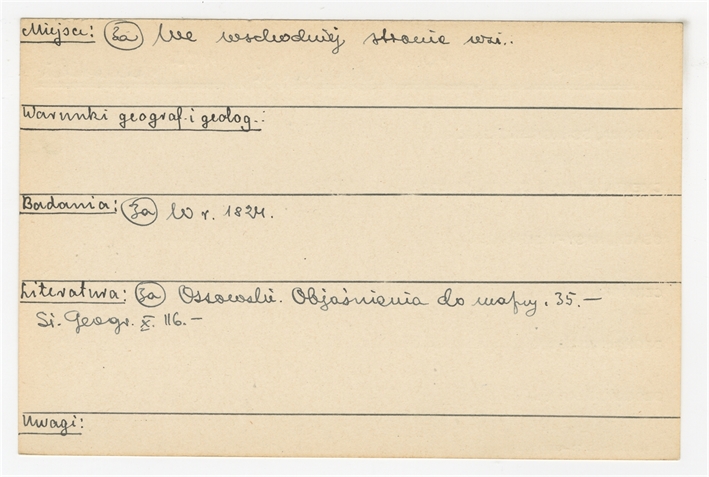 Miejsce: 3a We wschodniej stronie wsi..
Warunki geograf. i geolog.:
Badania: 3a W r. 1824.
Literatura: 3a Ossowski. Objaśnienia do mapy. 35.—
Sł. Geogr. X. 116.—
Uwagi: